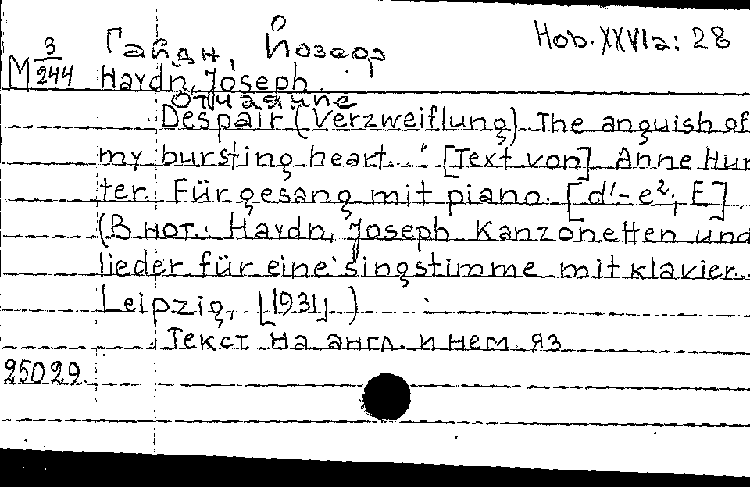 Гайдн, Йозеф Hob. XXVIa: 28
M 3/244 Haydn, Joseph.
Отчаяние
Despair (Verzweiflung). The anguish of
my bursting heart..." [Text von] Anne Hun
ter. Für gesang mit piano. [d'-e²; E]
(В нот.: Haydn, Joseph Kanzonetten und
lieder für eine singstimme mit klavier.
Leipzig, [1931].)
Текст на англ. и нем. яз
25029.